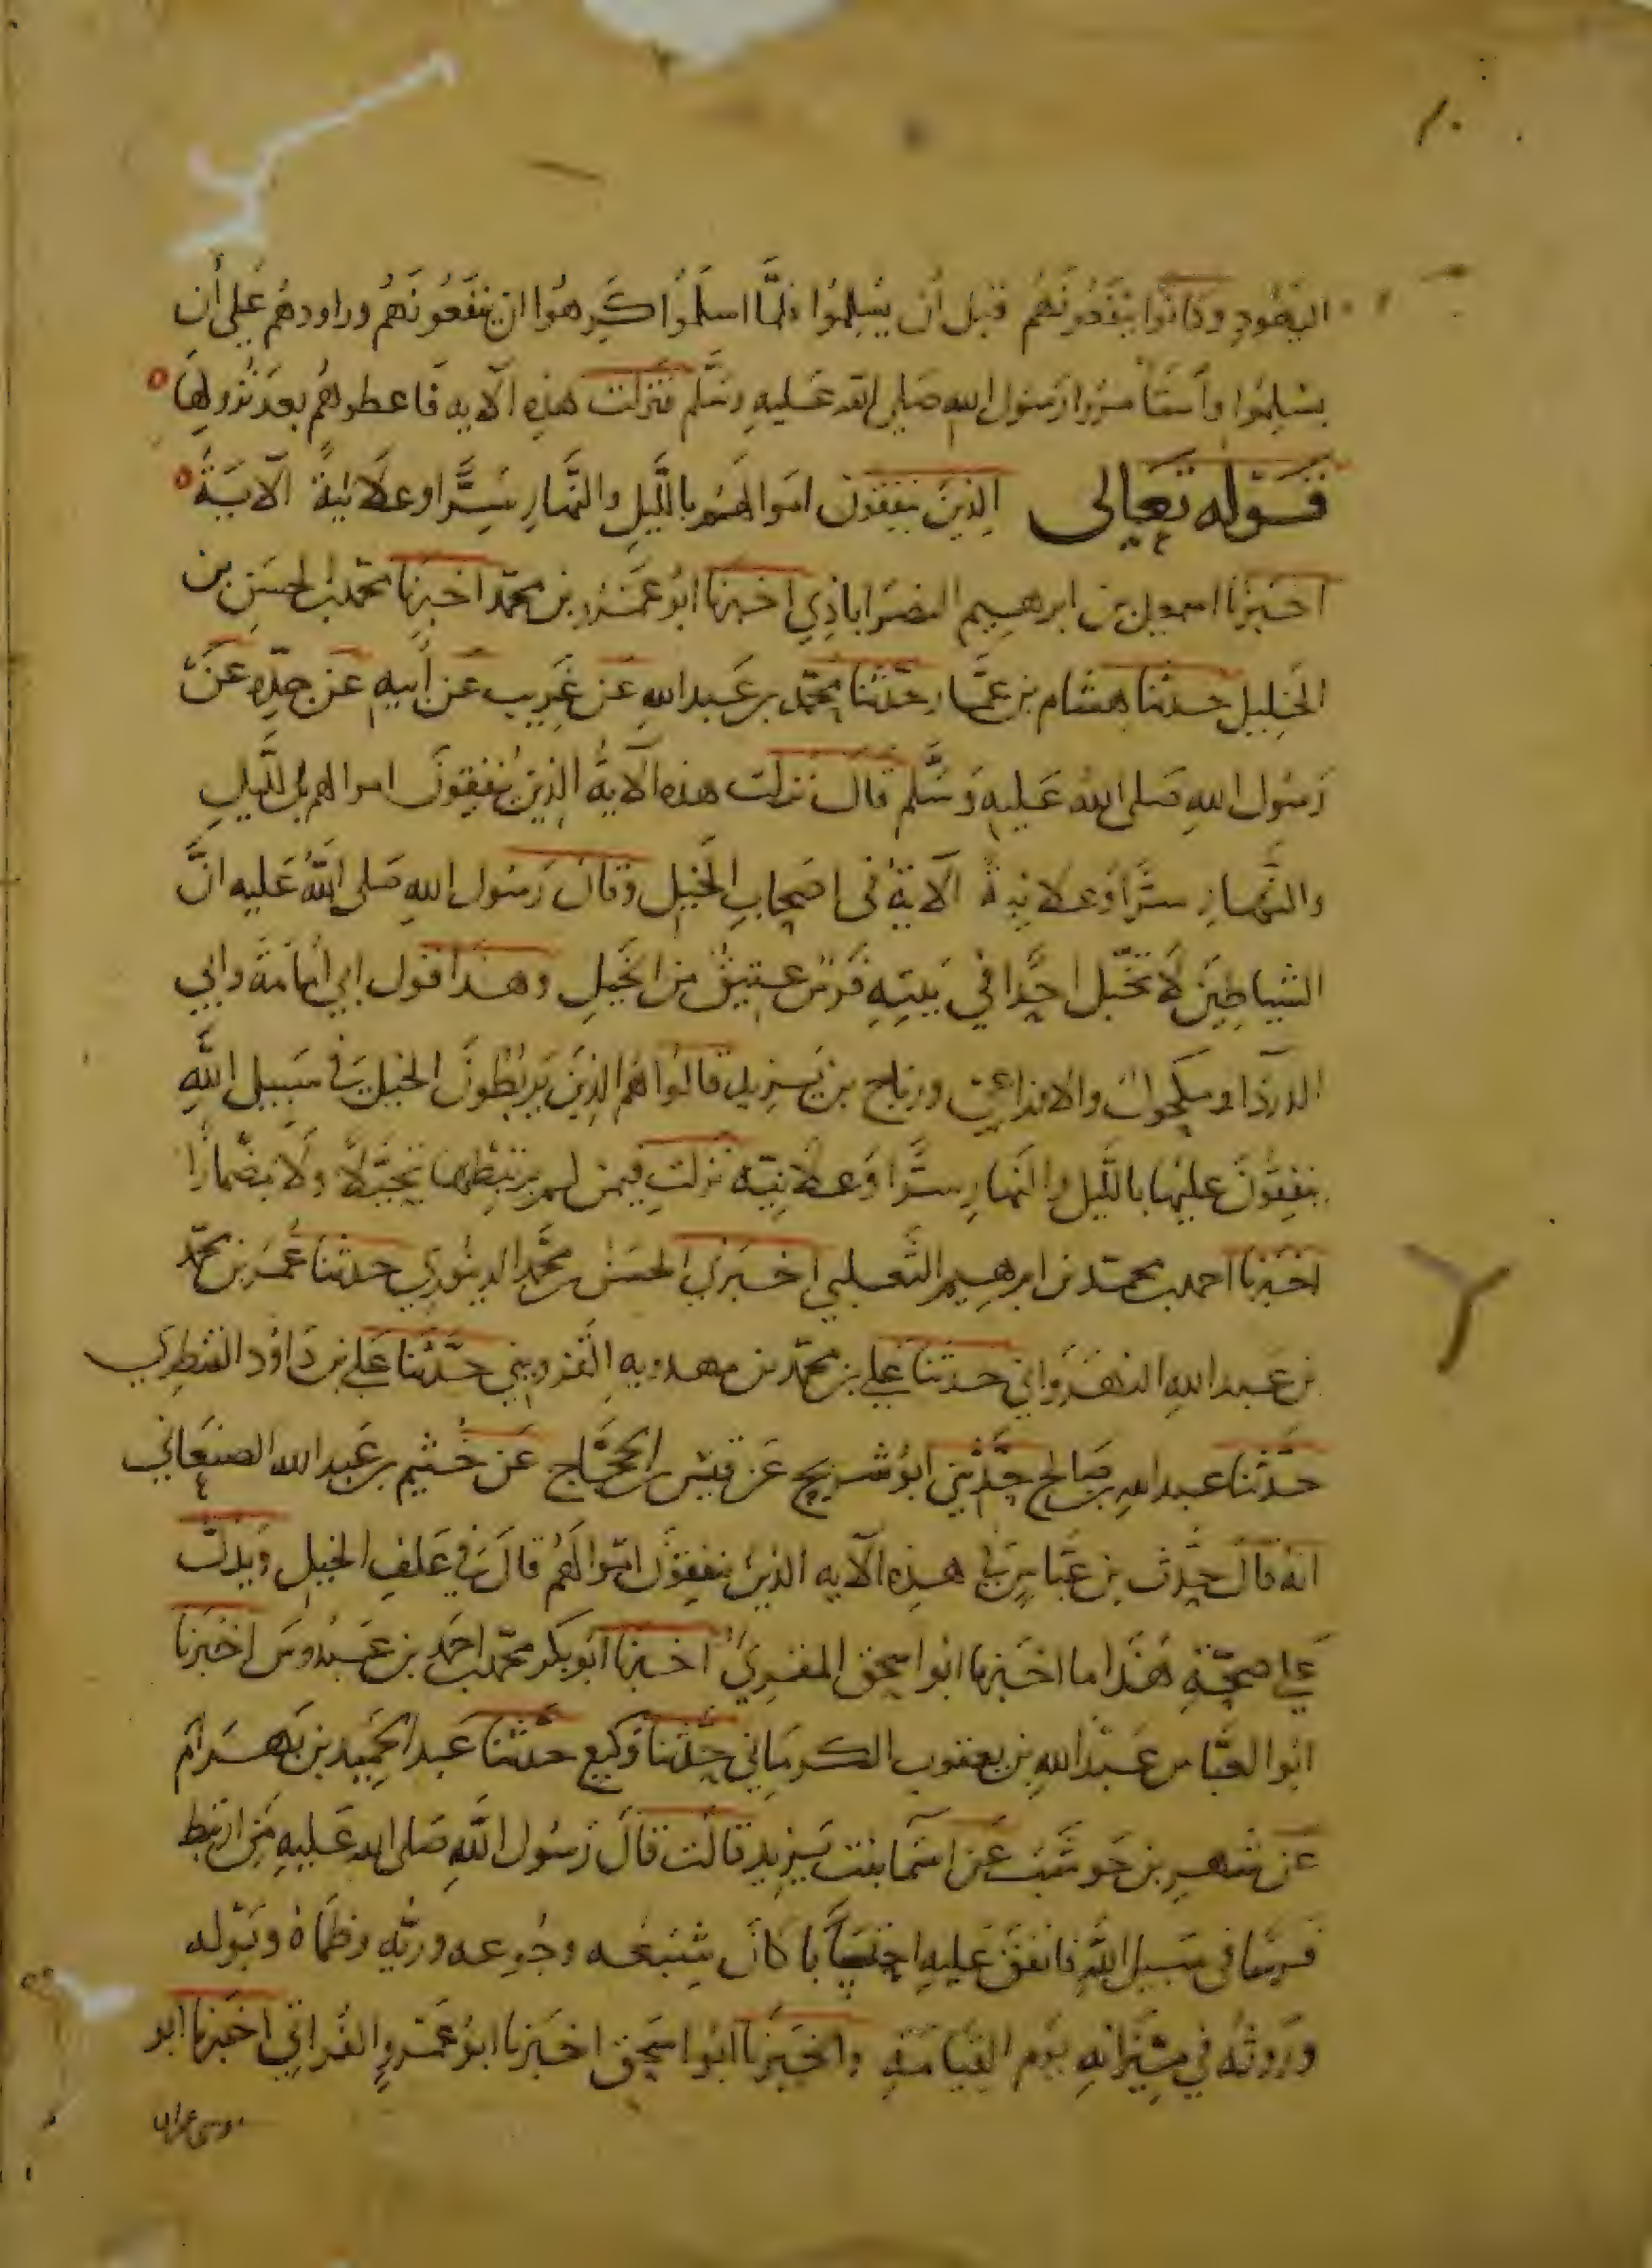 اليهود وكانوا ينفعونهم قبل أن يسلموا فلمّا اسلمُوا كَرِهُوا ان ينفَعُونَهُم وراودهُم عَلى أن
يسْلِمُوا وأستأمَرُوا رَسُول الله صَلى الله عَليهِ وسَلَّم فنزلت هَذِه الآيه فَاعطوهُم بعدَ نُزولها
قوله تعالى الذِينَ ينفِقُونَ امَوالهُم باللَّيلِ والنَّهارِ سِرًّا وعلَانِيةً الآيَة
اخبَرنا اسمعيل بن ابرهيم النصرَاباذِي اخبرنا ابُو عَمْرو بن محمّد اخبَرنا محمد بن الحسَين بن
الخَلِيل حدثنا هشام بن عمَّار حدَّثنا محمّد بن عَبد اللهِ عَن عَرِيب عَن أبيهِ عَن جدِّه عَنْ
رَسُول اللهِ صَلى اللهُ عَليهِ وَسَلَّم قال نزلت هذه الآيةُ الذِينَ ينفِقونَ اموالهم بِاللَّيلِ
والنَّهارِ سرًّا وَعلَانِيةً الآيةُ فى اصحَابِ الخَيلِ وقال رَسُول اللهِ صَلى اللهُ عَليه انَّ
الشياطِينَ لَا تخَبّل احَدًا في بَيتِهِ فَرسٌ عتِيقٌ مِن الخَيلِ وهذا قول ابي أمَامَةَ وابي
الدردَاء ومكحول والاوزاعي ورباح بن يزيد قالُوا هُم الذِينَ يَربُطونَ الخيلَ فِي سَبِيل اللهِ
ينفِقُونَ عليهَا باللَّيلِ والنَّهارِ سرًّا وَعلَانِيَه نزلت فيمَن لم يرتبِطها تخيَّلًا ولَا مِضْمارًا
اخبَرنا احمد بن محمّد بن ابرهيم الثَّعلبي اخبَرني الحسَين بن محَّمد الدِينوري حدثنا عُمَر بن محمّد
بن عَبد اللهِ النهرَوَاني حدثنا علي بن محمّد بن مهرويه القَزوِيني حدَّثنا عَلي بن دَاوُد القنطرِي
حدَّثنا عبد اللهِ بن صَالح حدَّثني ابُو شريح عَن قيس بن الحجَّاج عَن خُثيم بن عَبد الله الصنعَاني
انهُ قالَ حدَّث بن عَبَّاسٍ فِي هذِه الآيه الذِينَ ينفِقُونَ امَوالهُم قالَ فِي عَلفِ الخَيلِ وَيدلّ
عَلي صحّتِهِ هَذا ما اخبَرنا ابُو اسحق المقرِيُّ اخبَرنا ابُو بكر محمّد بن احمَد بن عَبدُوس اخبَرنا
ابُو العَبَّاس عَبد اللهِ بن يعقوب الكرمَاني حدَّثنا وَكيع حدَّثنا عَبد الحَمِيد بن بَهرَام
عَن شهرِ بن حَوشَب عَن اسمَا بنت يَزِيد قالَت قالَ رَسُول اللهِ صَلى الله عَليهِ مَن ارتبَط
فرسًا في سَبيل اللهِ فانفقَ عَليهِ احتسَابًا كانَ شِبَعُه وجُوعه وريُّه وظمَاهُ وبَوْله
ورَوثُه في مِيزَانِه يَوم القيَامَةِ واخبَرنا ابُو اسحق اخبَرنا ابُو عَمْرو الفُراتي اخبَرنا ابو
موسى عمران